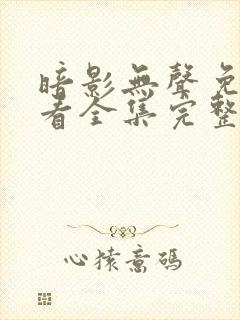 暗影無聲免
看全集完整
心猿意碼